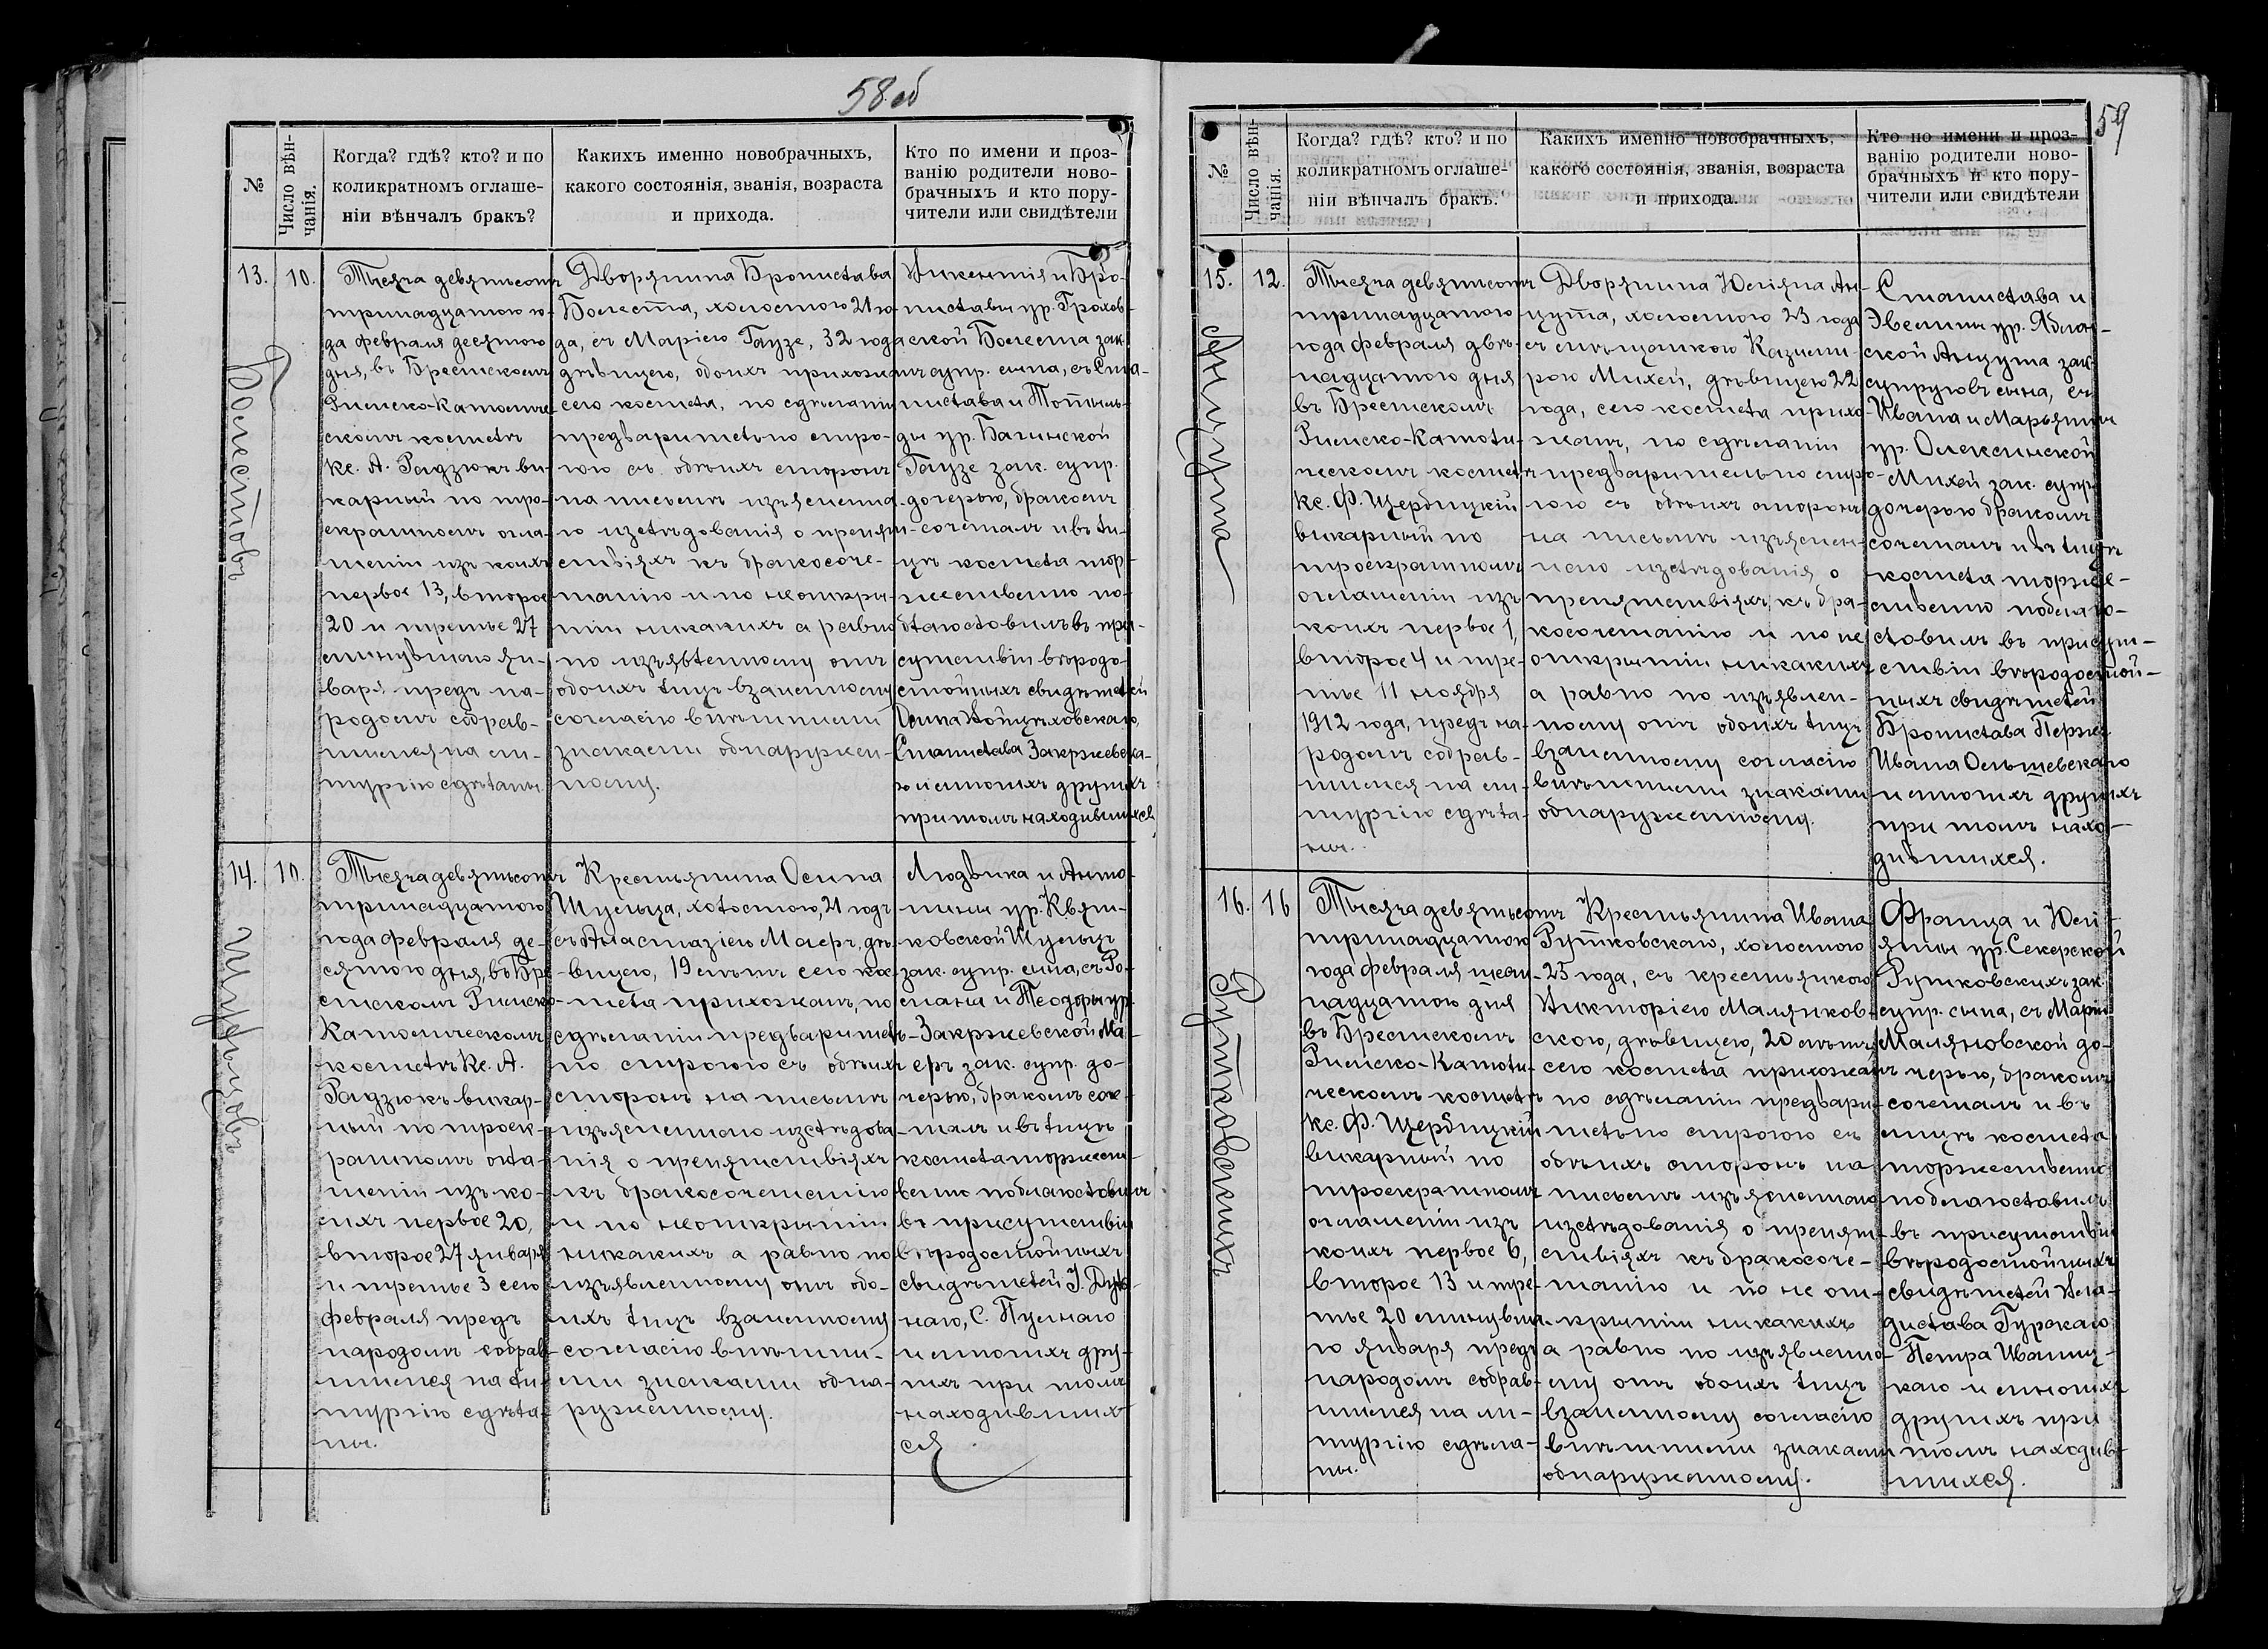 58об
№
Число вѣн-
чанія.
Когда? гдѣ? кто? и по
коликратномъ оглаше-
ніи вѣнчалъ бракъ?
Какихъ именно новобрачныхъ,
какого состоянія, званія, возраста
и прихода.
Кто по имени и проз-
ванію родители ново-
брачныхъ и кто пору-
чители или свидѣтели
13.
10.
Болестовъ
Тысяча девятьсотъ
тринадцатого го-
да февраля десятого
дня, въ Брестскомъ
Римско-Католиче-
скомъ костелѣ
Кс. А. Радзюкъ ви-
карный по трое-
кратномъ огла-
шеніи изъ коихъ
первое 13, второе
20 и третье 27
минувшаго ян-
варя предъ на-
родомъ собрав-
шимся на ли-
тургію сдѣланы.
Дворянина Бронислава
Болеста, холостого 21 го-
да, съ Маріею Гаузе, 32 года
дѣвицею, обоихъ прихожанъ
сего костела, по сдѣланіи
предварительно стро-
гого съ обѣихъ сторонъ
на письмѣ изъясненна-
го изслѣдованія о препят-
ствіяхъ къ бракосоче-
танію и по неоткры-
тіи никакихъ а равно
по изъявленному отъ
обоихъ лицъ взаимному
согласію внѣшними
знаками обнаружен-
ному.
Викентія и Бро-
ниславы ур. Грохов-
ской Болеста зак.
супр. сына, съ Ста-
нислава и Тотыль-
ды ур. Багинской
Гаузе зак. супр.
дочерью, бракомъ
сочеталъ и въ ли-
цѣ костела тор-
жественно по-
благословилъ въ при-
сутствіи вѣродо-
стойныхъ свидѣтелей
Осипа Войцѣховскаго,
Станислава Закржевска-
го и многихъ другихъ
притомъ находившихся
14.
10.
Шульцовъ
Тысяча девятьсотъ
тринадцатого
года февраля де-
сятого дня, въ Бре-
стскомъ Римско-
Католическомъ
костелѣ Кс. А.
Радзюкъ викар-
ный по троек-
ратномъ огла-
шеніи изъ ко-
ихъ первое 20,
второе 27 января
и третье 3 сего
февраля предъ
народомъ собрав-
шимся на ли-
тургію сдѣла-
ны.
Крестьянина Осипа
Шульца, холостого, 21 годъ
съ Анастазіею Маеръ, дѣ-
вицею, 19 лѣтъ сего кос-
тела прихожанъ, по
сдѣланіи предваритель-
но строгого съ обѣихъ
сторонъ на письмѣ
изъясненного изслѣдова-
нія о препятствіяхъ
къ бракосочетанію
и по неоткрытіи
никакихъ а равно по
изъявленному отъ обо-
ихъ лицъ взаимному
согласію внѣшни-
ми знаками обна-
руженному.
Людвика и Анто-
нины ур. Квят-
ковской Шульцъ
зак. супр. сына, съ Ро-
мана и Теодоры ур.
Закржевской Ма-
еръ зак. супр. до-
черью, бракомъ соче-
талъ и въ лицѣ
костела торжест-
венно поблагословилъ
въ присутствіи
вѣродостойныхъ
свидѣтелей І.
наго, С.
и многихъ дру-
гихъ при томъ
находивших-
ся
59
№
Число вѣн-
чанія.
Когда? гдѣ? кто? и по
коликратномъ оглаше-
ніи вѣнчалъ бракъ.
Какихъ именно новобрачныхъ,
какого состоянія, званія, возраста
и прихода.
Кто по имени и проз-
ванію родители ново-
брачныхъ и кто пору-
чители или свидѣтели
15.
12.
Анцута
Тысяча девятьсотъ
тринадцатого
года февраля двѣ-
надцатого дня
въ Брестскомъ
Римско-Католи-
ческомъ костелѣ
Кс. Ф. Щербицкій
викарный по
троекратномъ
оглашеніи изъ
коихъ первое 1,
второе 4 и тре-
тье 11 ноября
1912 года, предъ на-
родомъ собрав-
шимся на ли-
тургію сдѣла-
ны.
Дворянина Юліяна Ан-
цута, холостого 23 года
съ мѣщанкою Казими-
рою Михей, дѣвицею 22
года, сего костела прихо-
жанъ, по сдѣланіи
предварительно стро-
гого съ обѣихъ сторонъ
на письмѣ изъяснен-
ного изслѣдованія о
препятствіяхъ къ бра-
косочетанію и по не
открытіи никакихъ
а равно по изъявлен-
ному отъ обоихъ лицъ
взаимному согласію
внѣшними знаками
обнаруженному.
Станислава и
Эвелины ур. Яблон-
ской Анцута зак.
супруговъ сына, съ
Ивана и Марьянны
ур. Олексинской
Михей зак. супр.
дочерью бракомъ
сочеталъ и въ лицѣ
костела торже-
ственно поблаго-
словилъ въ присут-
ствіи вѣродостой-
ныхъ свидѣтелей
Бронислава
Ивана Ольшевскаго
и многихъ другихъ
при томъ нахо-
дившихся.
16.
16
Рутковскихъ
Тысяча девятьсотъ
тринадцатого
года февраля шест-
надцатого дня
въ Брестскомъ
Римско-Католи-
ческомъ костелѣ
Кс. Ф. Щербицкій
викарный по
троекратномъ
оглашеніи изъ
коихъ первое 6,
второе 13 и тре-
тье 20 минувша-
го января предъ
народомъ собрав-
шимся на ли-
тургію сдѣла-
ны.
Крестьянина Ивана
Рутковскаго, холостого
25 года, съ крестьянкою
Викторіею Маляновс-
кою, дѣвицею, 20 лѣтъ,
сего костела прихожанъ
по сдѣланіи предвари-
тельно строгого съ
обѣихъ сторонъ на
письмѣ изъясненного
изслѣдованія о препят-
ствіяхъ къ бракосоче-
танію и по не от-
крытіи никакихъ
а равно по изъявленно-
му отъ обоихъ лицъ
взаимному согласію
внѣшними знаками
обнаруженному.
Франца и Юлі-
янны ур. Секерской
Рутковскихъ зак.
супр. сына, съ Маріи
Маляновской до-
черью, бракомъ
сочеталъ и въ
лицѣ костела
торжественно
поблагословилъ
въ присутствіи
вѣродостойныхъ
свидѣтелей Вла-
дислава Гурскаго
Петра Иваниц-
каго и многихъ
другихъ при
томъ находив-
шихся.